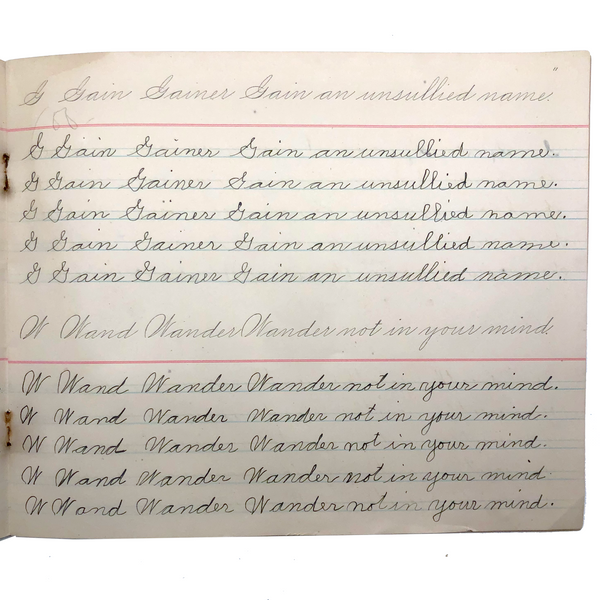 G Gain Gainer Gain an unsullied name.
G Gain Gainer Gain an unsullied name.
G Gain Gainer Gain an unsullied name.
G Gain Gainer Gain an unsullied name.
G Gain Gainer Gain an unsullied name.
G Gain Gainer Gain an unsullied name.
W Wand Wander Wander not in your mind.
W Wand Wander Wander not in your mind.
W Wand Wander Wander not in your mind.
W Wand Wander Wander not in your mind.
W Wand Wander Wander not in your mind.
W Wand Wander Wander not in your mind.